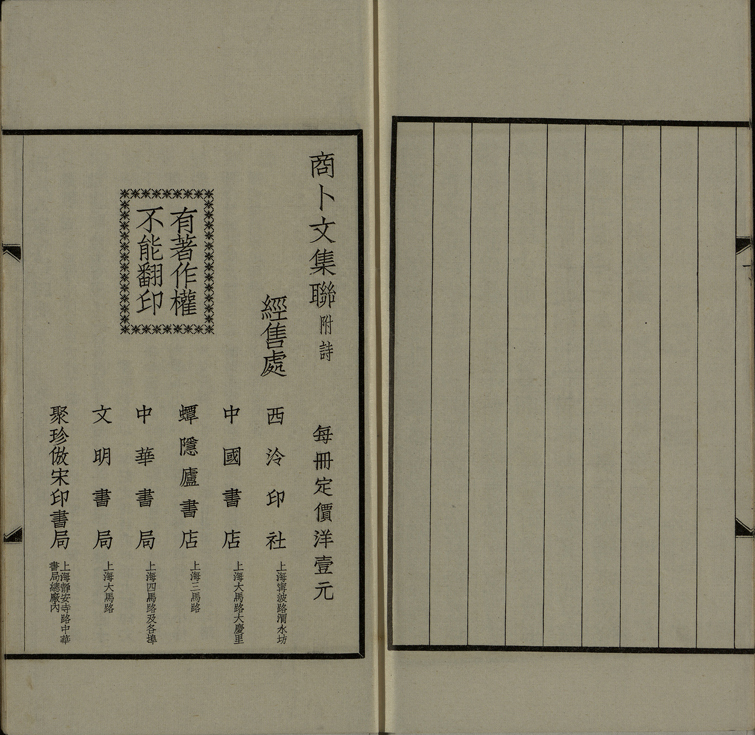 商卜文集聯附詩　每冊定價洋壹元
經售處
西泠印社　上海寗波路渭水坊
中國書店　上海大馬路大慶里
蟫隱廬書店　上海三馬路
中華書局　上海四馬路及各埠
文明書局　上海大馬路
聚珍倣宋印書局　上海靜安寺路中華書局總廠內
有著作權
不能翻印